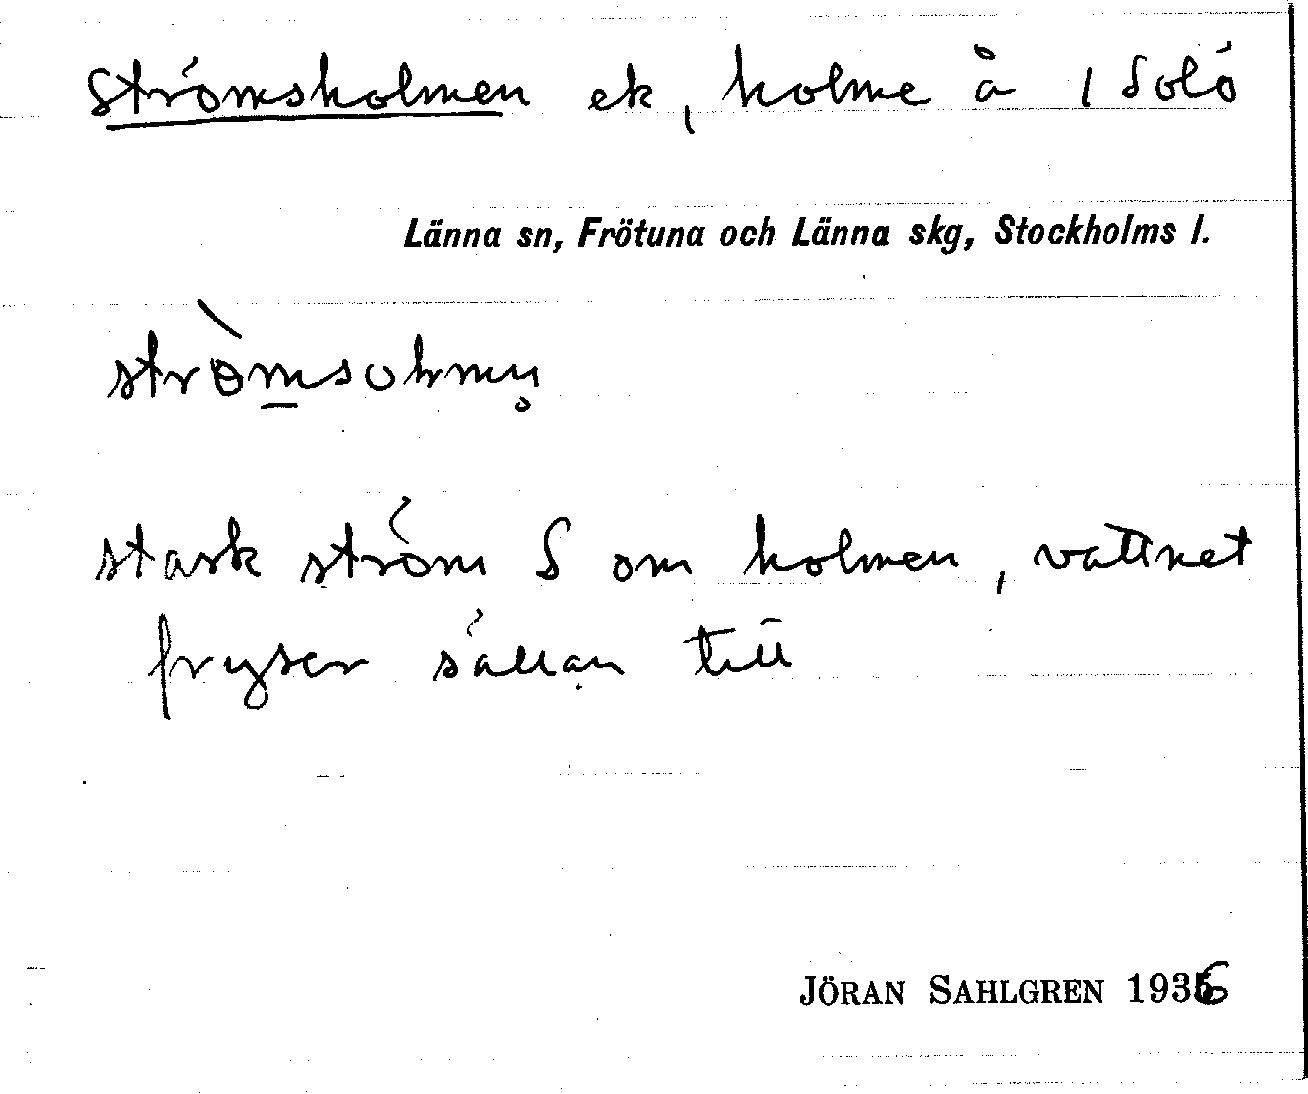 Strömsholmen ek, holme å 1 Solö
Länna sn, Frötuna och Länna skg, Stockholms l.
strö̀m̲sohmn̥
stark ström S om holmen, vattnet
fryser sällan till
JÖRAN SAHLGREN 1936